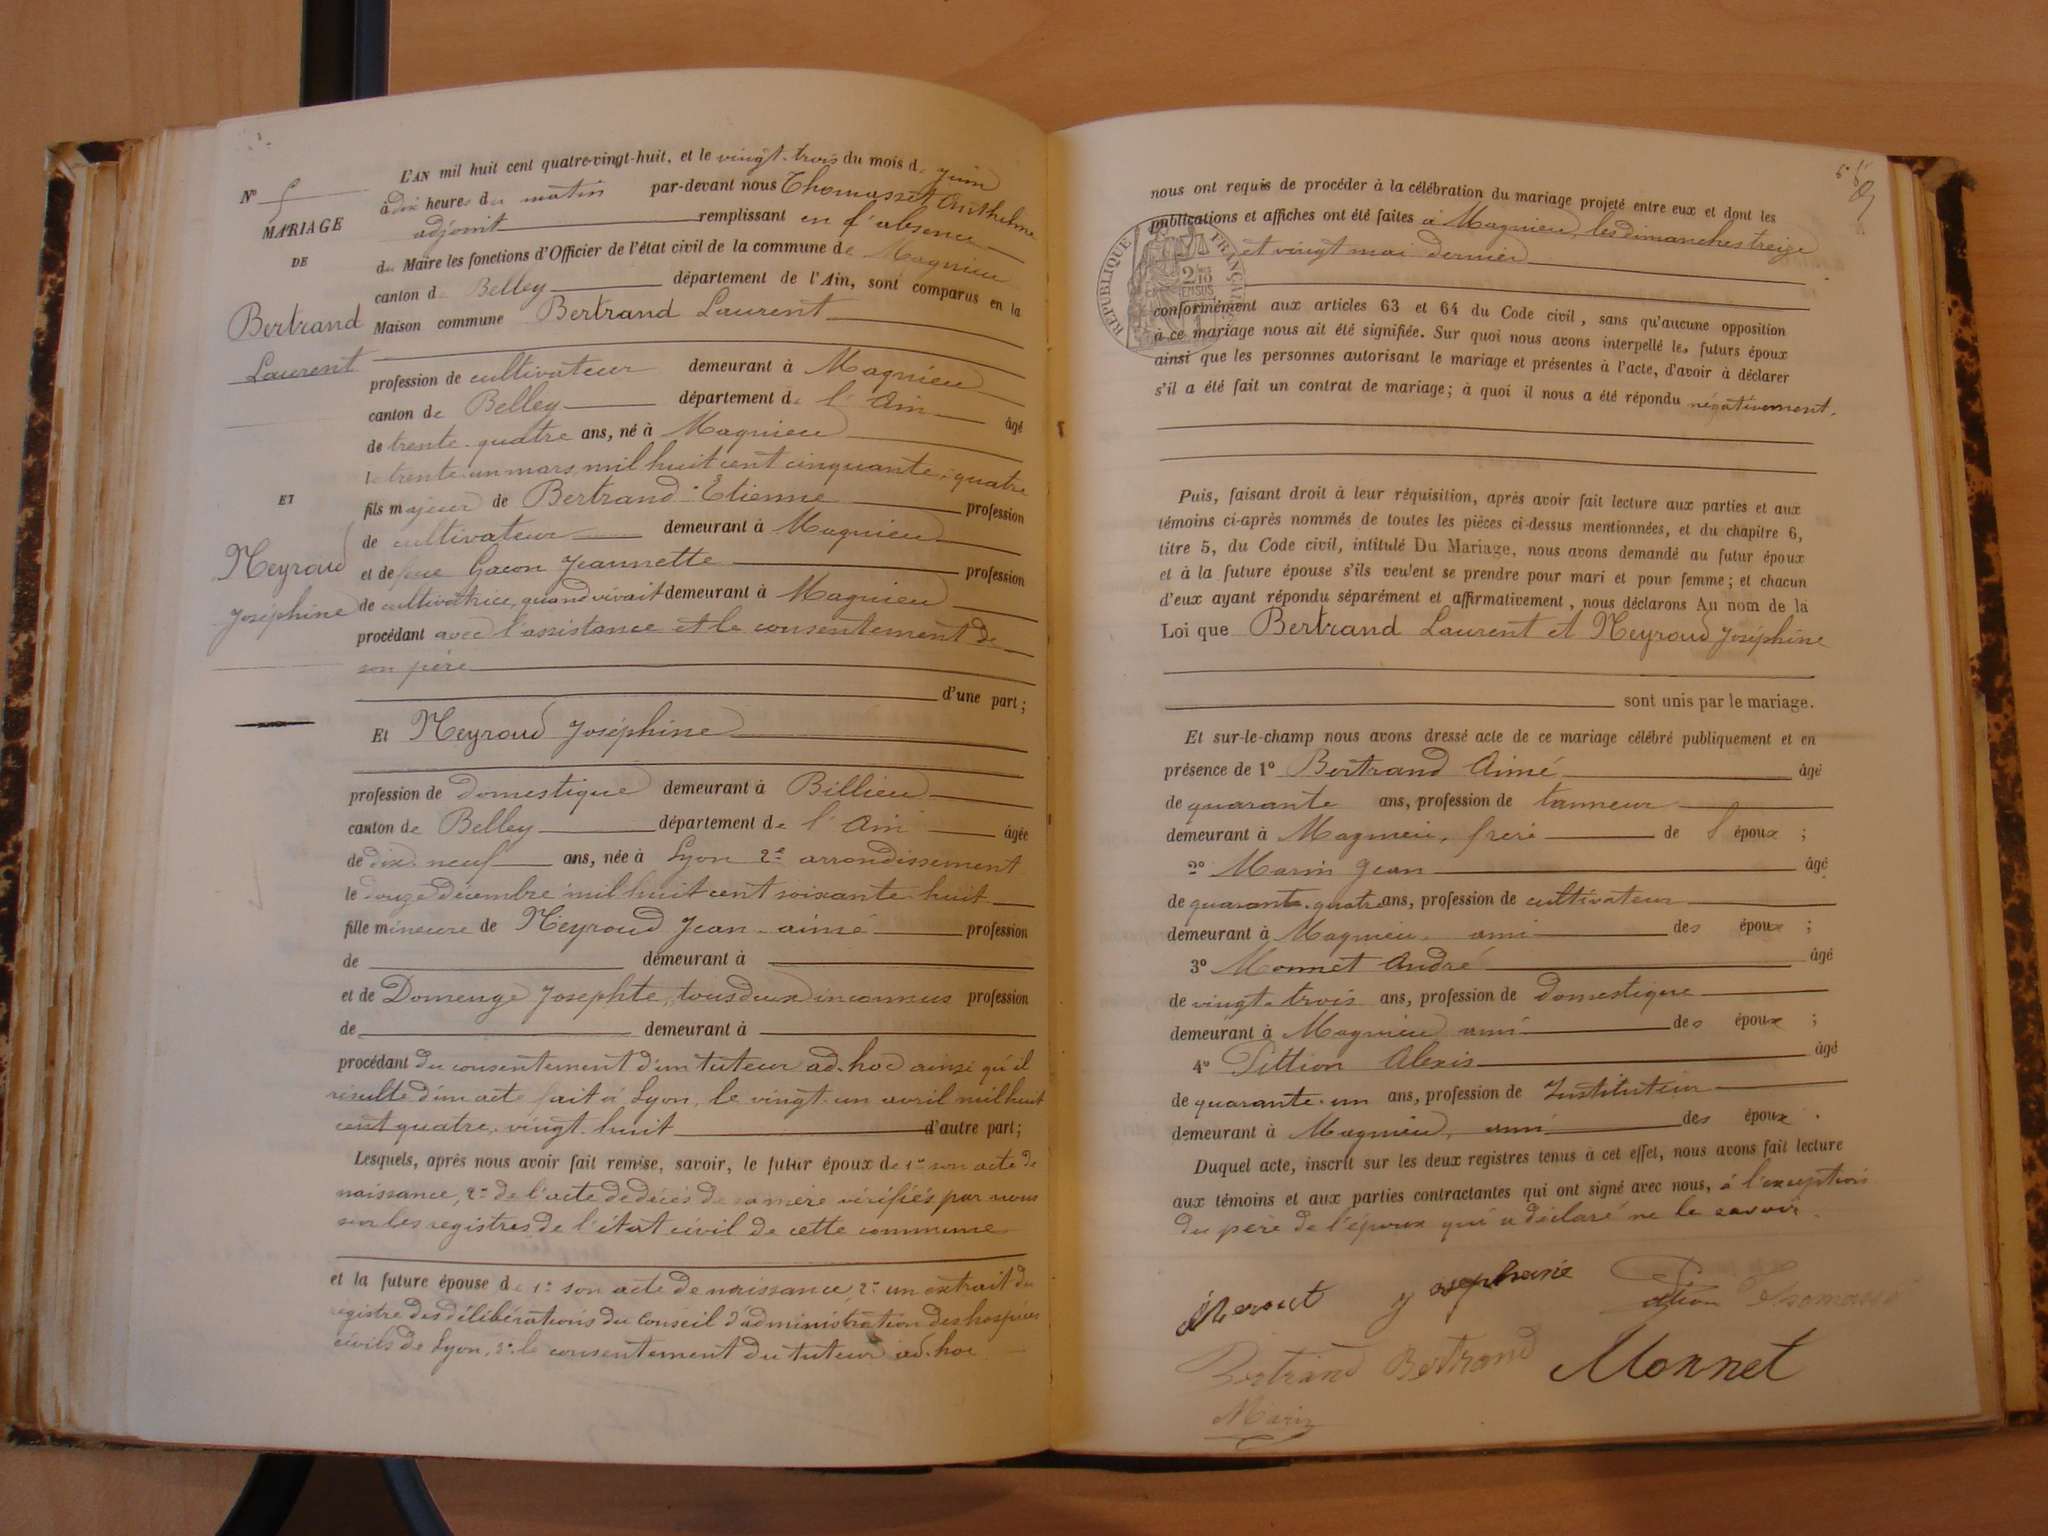 L'AN mil huit cent quatre-vingt-huit, et le vingt-trois du mois de juin
N° 5
à dix heures du matin par-devant nous Thomasset Anthelme
MARIAGE
adjoint remplissant en l'absence
DE
du Maire les fonctions d'Officier de l'état civil de la commune de Magnieu
canton de Belley département de l'Ain, sont comparus en la
Bertrand
Laurent
Maison commune Bertrand Laurent
profession de cultivateur demeurant à Magnieu
canton de Belley département de l'Ain âgé
de trente-quatre ans, né à Magnieu
le trente-un mars mil huit cent cinquante-quatre
ET
fils majeur de Bertrand Etienne profession
de cultivateur demeurant à Magnieu
Neyroud
Joséphine
et de feue Gacon Jeannette profession
de cultivatrice, quand vivait demeurant à Magnieu
procédant avec l'assistance et le consentement de
son père
d'une part;
Et Neyroud Joséphine
profession de domestique demeurant à Billieu
canton de Belley département de l'Ain âgée
de dix-neuf ans, née à Lyon 2e arrondissement
le douze décembre mil huit cent soixante-huit
fille mineure de Neyroud Jean-aimé profession
de demeurant à
et de Domenge Josephte, tous deux inconnus profession
de demeurant à
procédant du consentement d'un tuteur ad-hoc ainsi qu'il
résulte d'un acte fait à Lyon, le vingt-un avril mil huit
cent quatre-vingt-huit d'autre part;
Lesquels, après nous avoir fait remise, savoir, le futur époux de 1° son acte de
naissance, 2° de l'acte de décès de sa mère vérifiés par nous
sur les registres de l'état civil de cette commune
et la future épouse de 1° son acte de naissance, 2° un extrait du
registre des délibérations du Conseil d'administration des hospices
civils de Lyon, 3° le consentement du tuteur ad-hoc
nous ont requis de procéder à la célébration du mariage projeté entre eux et dont les
publications et affiches ont été faites à Magnieu, les dimanches treize
et vingt mai dernier
RÉPUBLIQUE FRANÇAISE
conformément aux articles 63 et 64 du Code civil, sans qu'aucune opposition
à ce mariage nous ait été signifiée. Sur quoi nous avons interpellé les futurs époux
ainsi que les personnes autorisant le mariage et présentes à l'acte, d'avoir à déclarer
s'il a été fait un contrat de mariage; à quoi il nous a été répondu négativement.
Puis, faisant droit à leur réquisition, après avoir fait lecture aux parties et aux
témoins ci-après nommés de toutes les pièces ci-dessus mentionnées, et du chapitre 6,
titre 5, du Code civil, intitulé Du Mariage, nous avons demandé au futur époux
et à la future épouse s'ils veulent se prendre pour mari et pour femme; et chacun
d'eux ayant répondu séparément et affirmativement, nous déclarons Au nom de la
Loi que Bertrand Laurent et Neyroud Joséphine
sont unis par le mariage.
Et sur-le-champ nous avons dressé acte de ce mariage célébré publiquement et en
présence de 1° Bertrand Aimé âgé
de quarante ans, profession de tanneur
demeurant à Magnieu, frère de l'époux;
2° Marin Jean âgé
de quarante-quatre ans, profession de cultivateur
demeurant à Magnieu, ami des époux;
3° Monnet André âgé
de vingt-trois ans, profession de domestique
demeurant à Magnieu ami des époux;
4° Pittion Alexis âgé
de quarante-un ans, profession de Instituteur
demeurant à Magnieu, ami des époux.
Duquel acte, inscrit sur les deux registres tenus à cet effet, nous avons fait lecture
aux témoins et aux parties contractantes qui ont signé avec nous, à l'exception
du père de l'époux qui a déclaré ne le savoir.
josephine Pittion Thomasset
Bertrand Bertrand Monnet
Marin